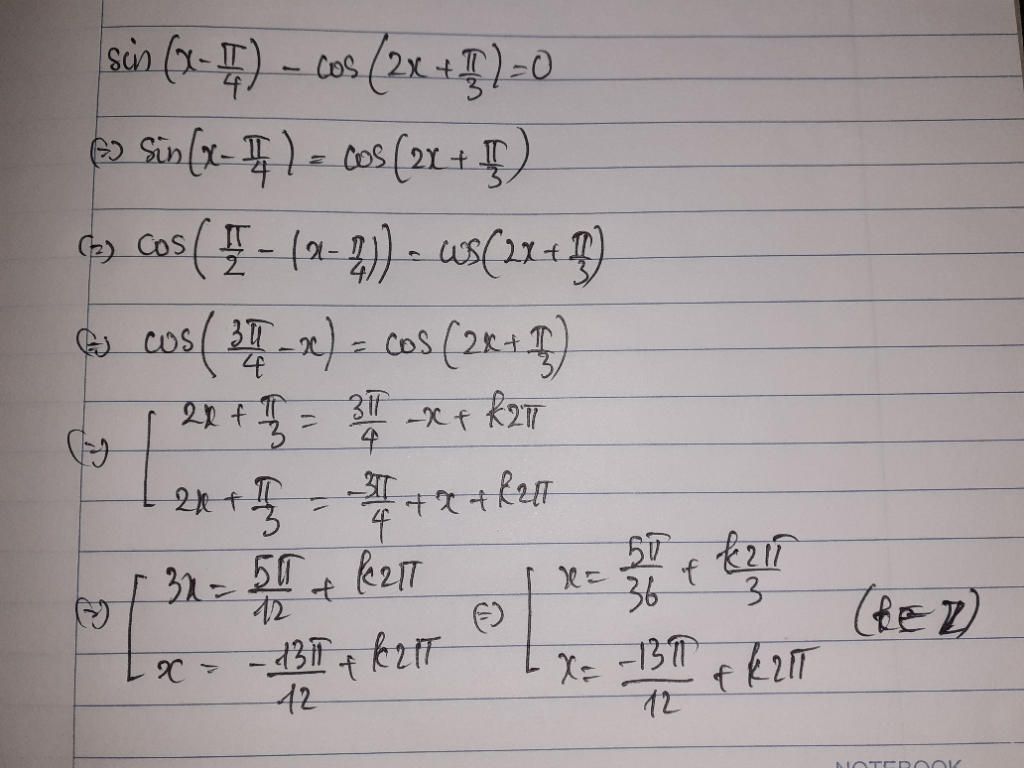 sin(x-π/4) - cos(2x+π/3)=0
(=) sin(x-π/4) = cos(2x+π/3)
(=) cos(π/2 - (x-π/4)) = cos(2x+π/3)
(=) cos(3π/4 -x) = cos(2x+π/3)
(=) [ 2x + π/3 = 3π/4 -x + k2π
2x + π/3 = -3π/4 + x + k2π
(=) [ 3x = 5π/12 + k2π (=) [ x = 5π/36 + k2π/3 (k∈Z)
x = -13π/12 + k2π x = -13π/12 + k2π
NOTEBOOK